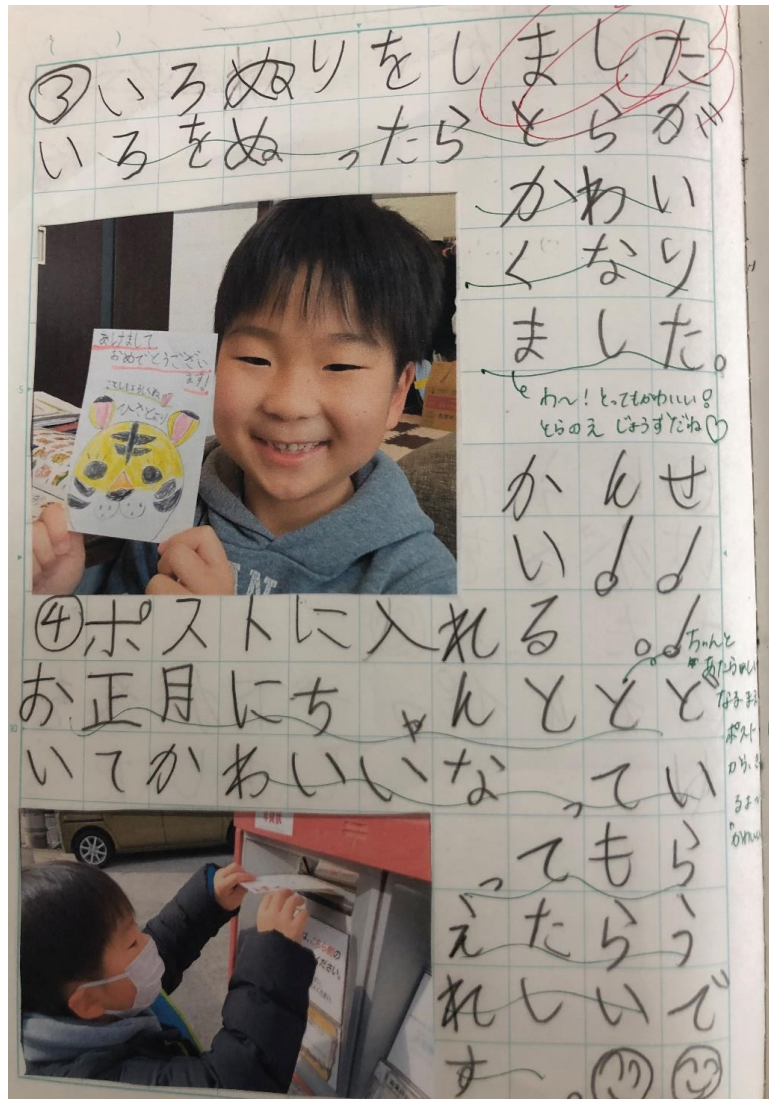 ③いろぬりをしました
いろをぬったらとらが
かわい
くなり
ました。
わ〜!とってもかわいい!
とらのえ じょうずだね♡
あけまして
おめでとうござい
ます!
ことしもよろしくね
ひさとより
かんせ
い♩♩
④ポストに入れる。♩
お正月にちゃんととど
いてかわいいなってい
ってもら
えたらう
れしいで
す〜。
ちゃんと
なるまえ
ポスト
年賀状
ください。